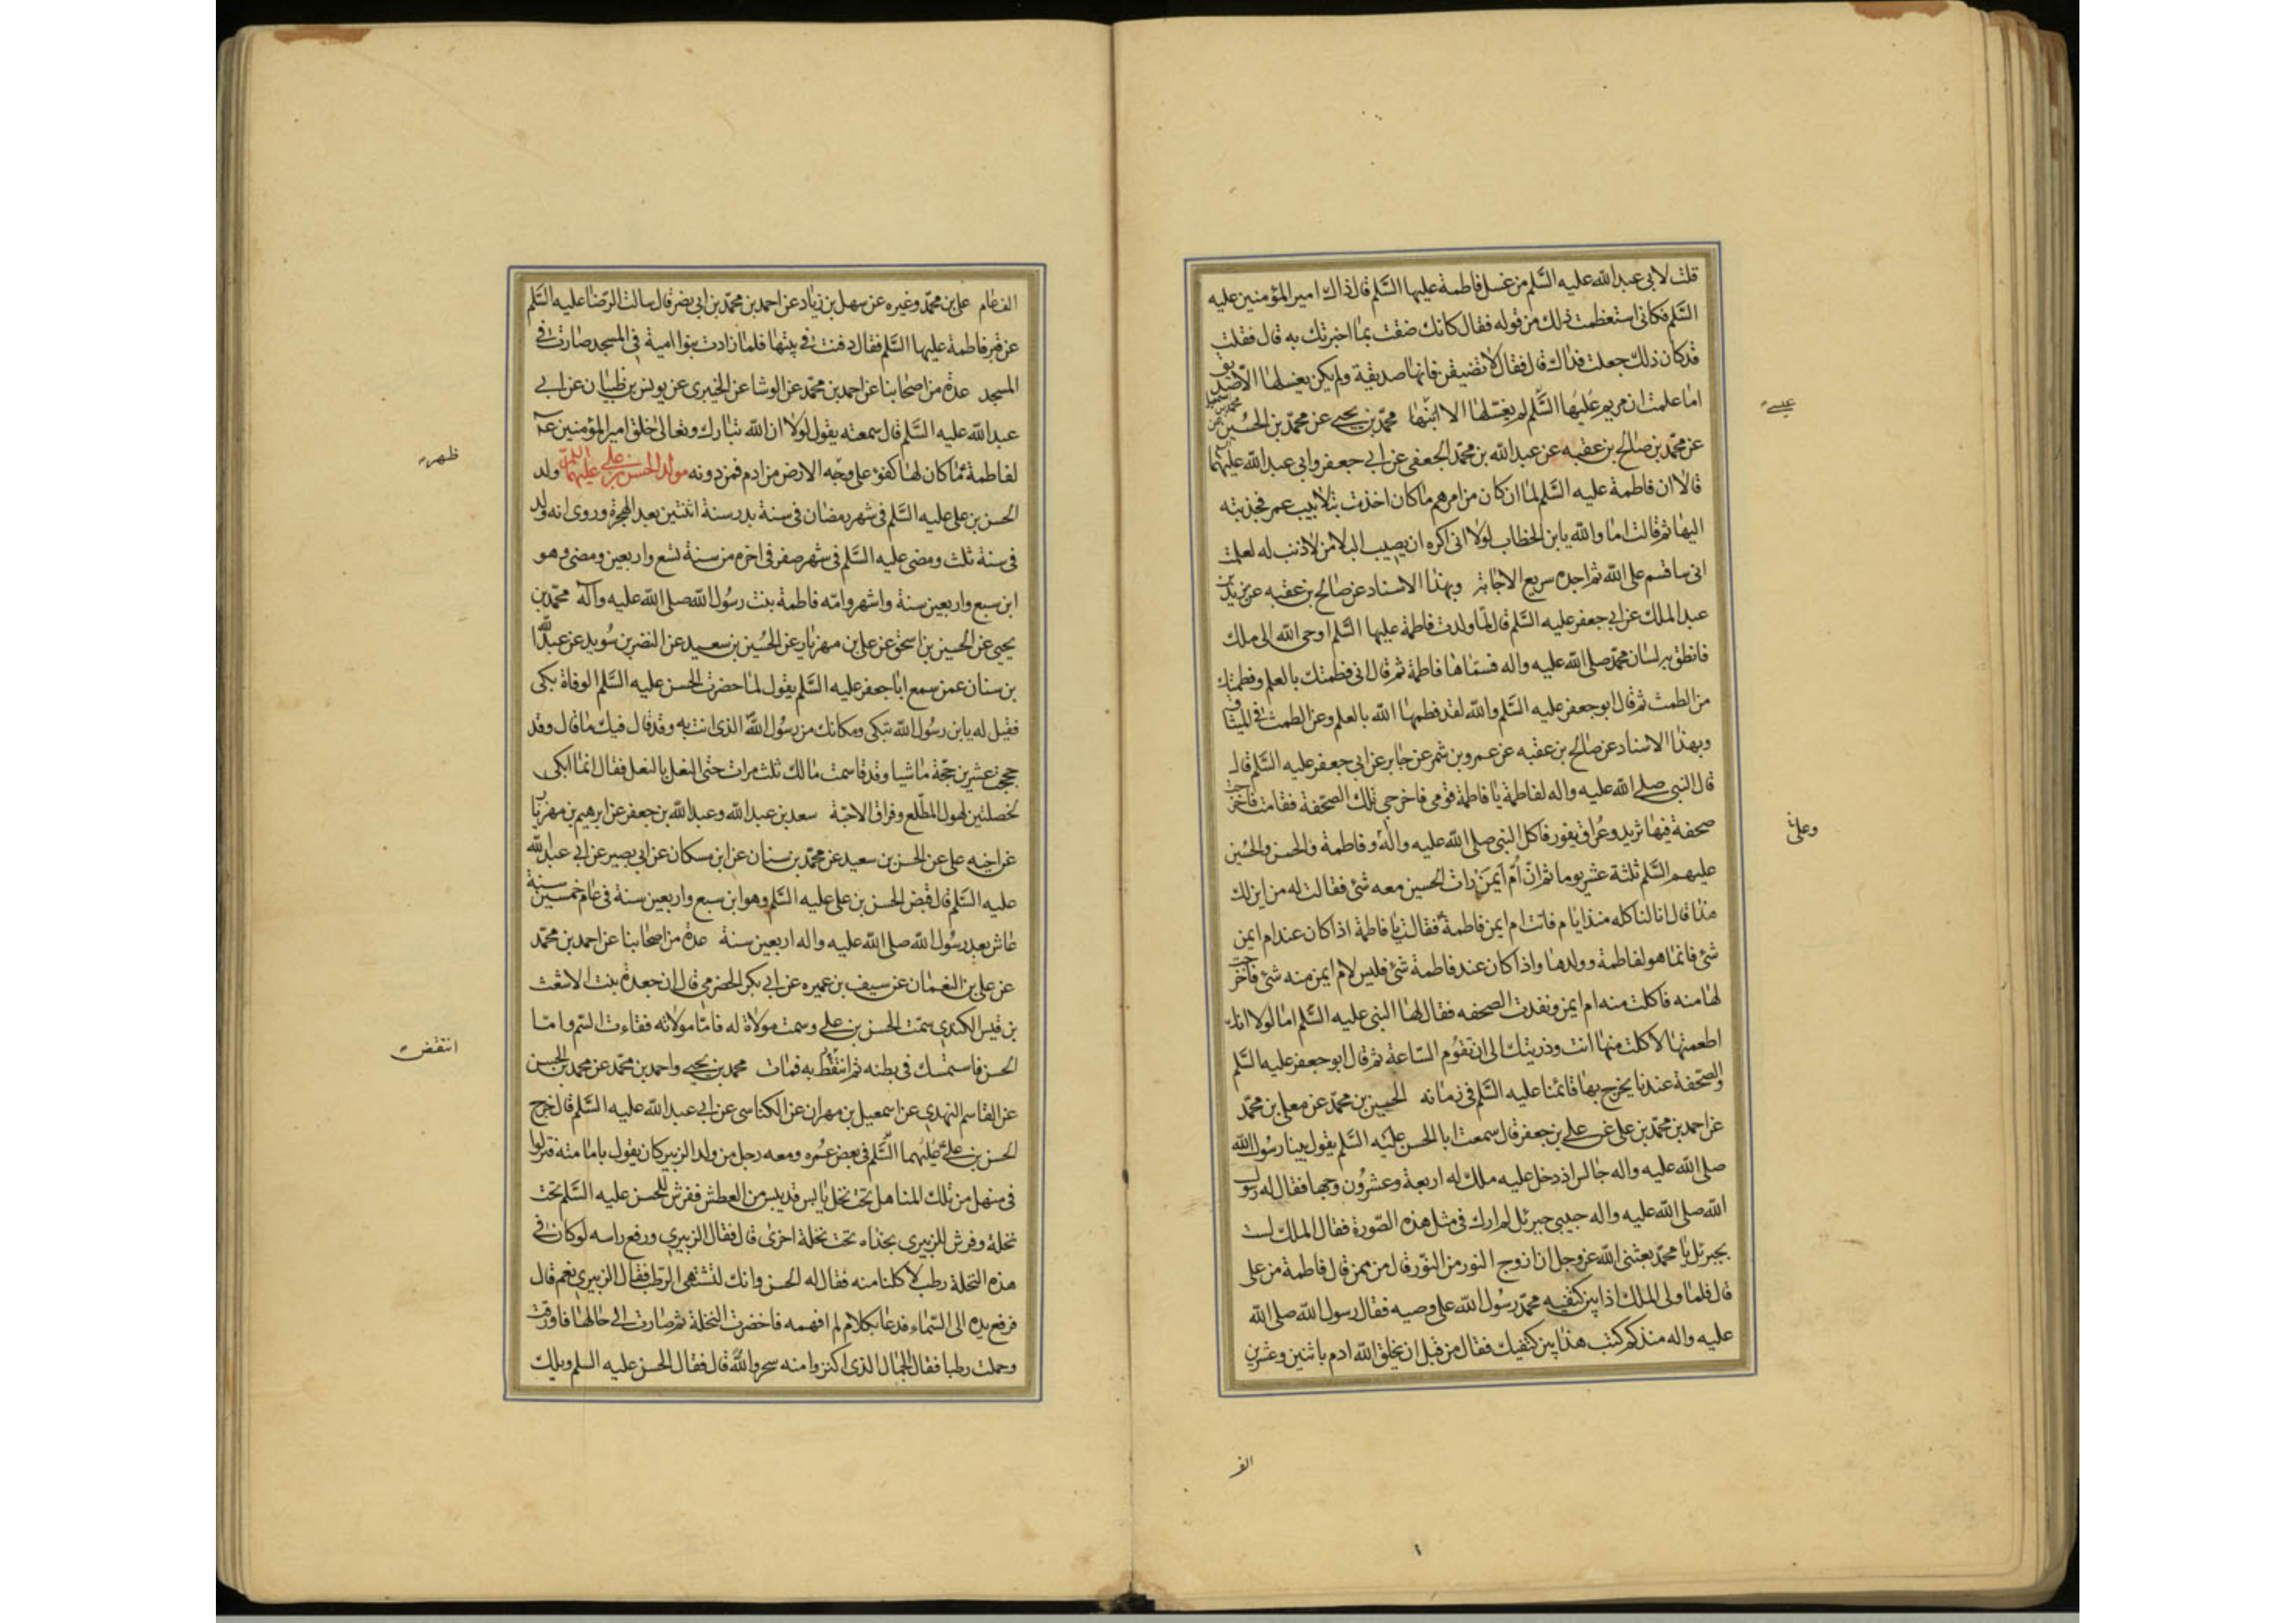 قلت لابي عبد الله عليه السّلم من غسل فاطمة عليها السّلم قال ذاك امير المؤمنين عليه
السّلم فكانى استعظمت ذلك من قوله فقال كانك ضقت بما اخبرتك به قال فقلت
قد كان ذلك جعلت فداك قال فقال لا تضيقن فانها صديقة ولم يكن يغسلها الا صديق
اما علمت ان مريم عليها السّلم لم يغسّلها الا ابنها محمّد بن يحيى عن محمّد بن الحسين
عيسى
عن محمّد بن صالح بن عقبه عن عبد الله بن محمّد الجعفى عن ابي جعفر وابى عبد الله عليهما
قالا ان فاطمة عليه السّلم لما ان كان من امرهم ما كان اخذت بتلابيب عمر فجذبته
اليها ثم قالت اما والله يا بن الخطاب لولا انى اكره ان يصيب البلا من لا ذنب له لعلمت
انى ساقسم على الله ثم اجده سريع الاجابة وبهذا الاسناد عن صالح بن عقبه عن يزيد بن
عبد الملك عن ابي جعفر عليه السّلم قال لما ولدت فاطمة عليها السّلم اوحى الله الى ملك
فانطق به لسان محمّد صلى الله عليه واله فسمّاها فاطمة ثم قال انى فطمتك بالعلم وفطمتك
من الطمث ثم قال ابو جعفر عليه السّلم والله لقد فطمها الله بالعلم وعن الطمث في الميثاق
وبهذا الاسناد عن صالح بن عقبه عن عمرو بن شمر عن جابر عن ابى جعفر عليه السّلم قال
قال النبى صلى الله عليه واله لفاطمة يا فاطمة قومى فاخرجى تلك الصحّفة فقامت فاخرجت
صحفة فيها ثريد وعُراق يفور فاكل النبى صلى الله عليه واله وفاطمة والحسن والحسين
وعلىّ
عليهم السّلم ثلثة عشر يوما ثم انّ اُمّ ايمَن رات الحسين معه شئ فقالت له من اين لك
هذا قال انا لناكله منذ ايام فاتت ام ايمن فاطمة فقالت يا فاطمة اذا كان عند ام ايمن
شئ فانما هو لفاطمة وولدها واذا كان عند فاطمة شئ فليس لام ايمن منه شئ فاخرجت
لها منه فاكلت منه ام ايمن ونفدت الصحفه فقال لها النبى عليه السّلم اما لولا انك
اطعمتها لاكلت منها انت وذريتك الى ان تقوم السّاعة ثم قال ابو جعفر عليه السّلم
والصحّفة عندنا يخرج بها قائمنا عليه السّلم فى زمانه الحسين بن محمّد عن معلى بن محمّد
عن احمد بن محمّد بن على عن على بن جعفر قال سمعت ابا الحسن عليه السّلم يقول بينا رسُول الله
صلى الله عليه واله جالس اذ دخل عليه ملك له اربعة وعشرُون وجها فقال له رسول
الله صلى الله عليه واله حبيبى جبرئل لم ارك فى مثل هذه الصّورة فقال الملك لست
بجبرئل يا محمّد بعثنى الله عز وجل ان ازوج النور من النّور قال من ممن قال فاطمة من على
قال فلما ولى الملك اذا بين كتفيه محمّد رسُول الله على وصيه فقال رسول الله صلى الله
عليه واله منذ كم كتب هذا بين كتفيك فقال من قبل ان يخلق الله ادم باثنين وعشرين
الف
الف عام على بن محمّد وغيره عن سهل بن زياد عن احمد بن محمّد بن ابى نصر قال سالت الرّضا عليه السّلم
عن قبر فاطمة عليها السّلم فقال دفنت في بيتها فلما زادت بنوا امية في المسجد صارت في
المسجد عدة من اصحابنا عن احمد بن محمّد عن الوشا عن الخيبرى عن يونس بن ظبيان عن ابي
عبد الله عليه السّلم قال سمعته يقول لولا ان الله تبارك وتعالى خلق امير المؤمنين
لفاطمة ما كان لها كفو على وجه الارض من ادم فمن دونه مولد الحسن بن على عليهما السّلم ولد
ظهر
الحسن بن على عليه السّلم فى شهر رمضان فى سنة بدر سنة اثنتين بعد الهجرة وروى انه ولد
فى سنة ثلث ومضى عليه السّلم فى شهر صفر فى اخره من سنة تسع واربعين ومضى وهو
ابن سبع واربعين سنة واشهر وامّه فاطمة بنت رسُول الله صلى الله عليه وآله محمّد بن
يحيى عن الحسين بن اسحق عن على بن مهزيار عن الحُسين بن سعيد عن النضر بن سُويد عن عبد الله
بن سنان عمن سمع ابا جعفر عليه السّلم يقول لما حضرت الحسن عليه السّلم الوفاة بكى
فقيل له يا بن رسُول الله تبكى ومكانك من رسُول الله الذى انت به وقد قال فيك ما قال وقد
حججت عشرين حجّة ماشيا وقد قاسمت مالك ثلث مرات حتى النعل بالنعل فقال انما ابكى
لخصلتين لهول المطّلع وفراق الاحبّة سعد بن عبد الله وعبد الله بن جعفر عن ابرهيم بن مهزيار
عن اخيه على عن الحسن بن سعيد عن محمّد بن سنان عن ابن مسكان عن ابي بصير عن ابي عبد الله
عليه السّلم قال قبض الحسن بن على عليه السّلم وهو ابن سبع واربعين سنة فى عام خمسين سنة
عاش بعد رسُول الله صلى الله عليه واله اربعين سنة عدة من اصحابنا عن احمد بن محمّد
عن على بن النعمان عن سيف بن عميره عن ابي بكر الحضرمى قال ان جعدة بنت الاشعث
بن قيس الكندى سمّت الحسن بن على وسمت مولاة له فامّا مولاته فقاءت السّم وامّا
الحسن فاستمسك فى بطنه ثم انتفط به فمات محمد بن يحيى واحمد بن محمّد عن محمد بن الحسن
انتقض
عن القاسم النهدى عن اسمعيل بن مهران عن الكناسى عن ابي عبد الله عليه السّلم قال خرج
الحسن بن على عليهما السّلم فى بعض عُمره ومعه رجل من ولد الزبير كان يقول بامامته فنزلوا
فى منهل من تلك المناهل تحت نخل يابس قد يبس من العطش ففرش للحسن عليه السّلم تحت
نخلة وفرش للزبيرى بحذاه تحت نخلة اخرى قال فقال الزبيرى ورفع راسه لو كان في
هذه النخلة رطب لاكلنا منه فقال له الحسن وانك لتشتهى الرّطب فقال الزبيرى نعم قال
فرفع يده الى السّماء فدعا بكلام لم افهمه فاخضرت النخلة ثم صارت الى حالها فاورقت
وحملت رطبا فقال الجمال الذى اكتروا منه سحر والله قال فقال الحسن عليه السلم ويلك